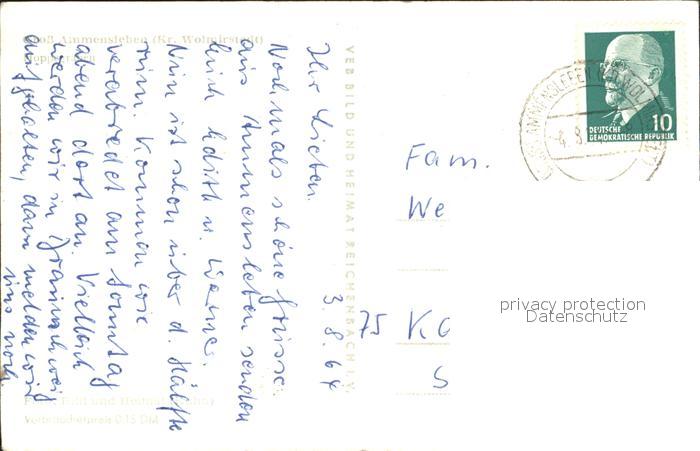 Groß Ammensleben (Kr. Wolmirstedt)
VEB BILD UND HEIMAT REICHENBACH I. V.
3. 8. 64
Ihr Lieben.
Nochmals schöne Grüsse
aus Ammensleben senden
Euch Edith u. Werner.
Nun ist schon über d. Hälfte
rum. Kommen wie
verabredet am Sonntag
abend dort an. Vielleicht
werden wir in Braunschweig
aufgehalten, dann melden wir
uns noch
Bild und Heimat
Verbraucherpreis 0,15 DM
10
DEUTSCHE
DEMOKRATISCHE REPUBLIK
Fam.
We
75 Kö
S
privacy protection
Datenschutz